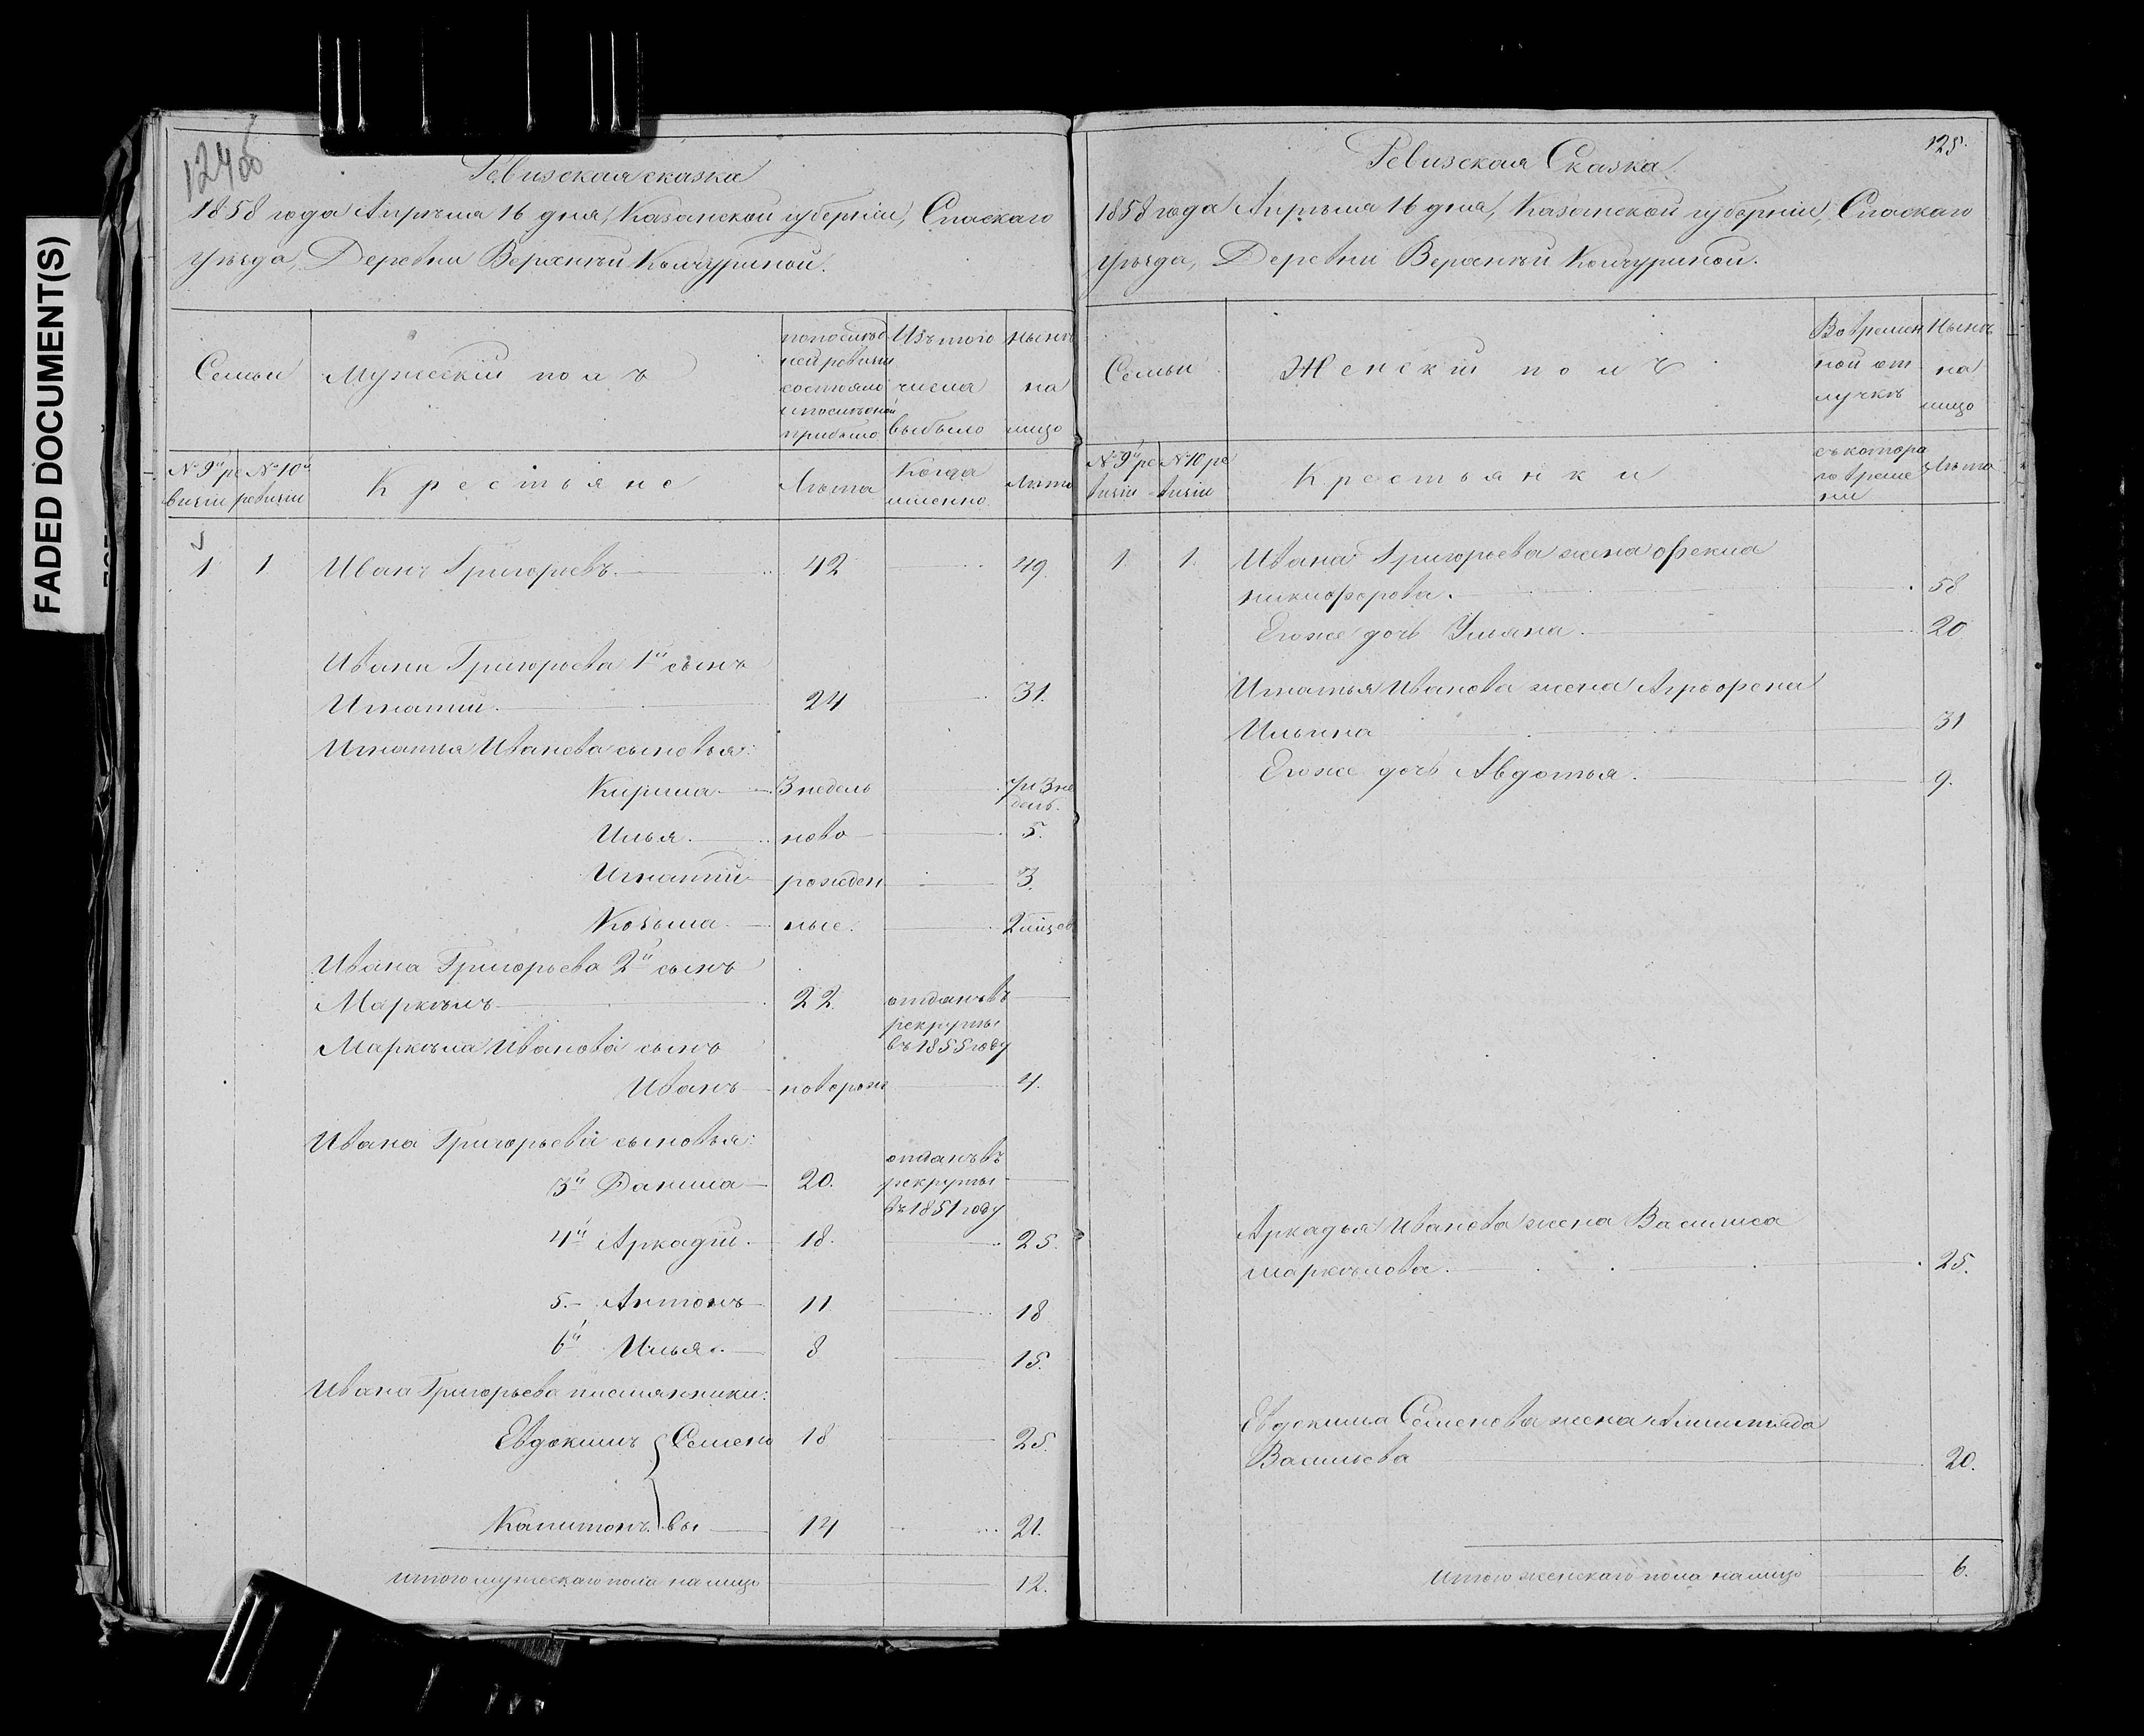 FADED DOCUMENT(S)
124об
Ревизская сказка
1858 года Апрѣля 16 дня, Казанской губерніи, Спаскаго
уѣзда, Деревни Верхнѣй Кочкуриной.
Семьи
Мужескій полъ
попослѣд
ней ревизіи
состояло
ипослѣ оной
прибыло
Изътого
числа
выбыло
нынѣ
на
лицо
№ 9й ре
визіи
№ 10й
ревизіи
Крестьяне
Лѣта
Когда
именно
Лѣта
1 1 Иванъ Григорьевъ. 42 49.
Ивана Григорьева 1й сынъ
Игнатий. 24 31.
Игнатья Иванова сыновья:
Кирила 3 недель 7 и 3 не
дель.
Илья. ново 5.
Игнатий рожден 3.
Козьма ные. 2 мѣсяц
Ивана Григорьева 2й сынъ
Маркѣлъ 22. отданъ въ
рекруты
въ 1855 году
Маркѣла Иванова сынъ
Иванъ новорож 4.
Ивана Григорьева сыновья:
3й Данила 20. отданъ въ
рекруты
въ 1851 году
4й Аркадий. 18. 25.
5. Антонъ 11 18
6й Илья. 8 15.
Ивана Григорьева племянники:
Евдокимъ Семено 18 25.
Капитонъ вы 14 21.
итого мужескаго пола налицо 12.
125.
Ревизская Сказка
1858 года Апрѣля 16 дня, Казанской губерніи, Спаскаго
уѣзда, Деревни Верхнѣй Кочкуриной.
Семьи
Женскій полъ
Вовремен
ной от
лучкѣ
Нынѣ
на
лицо
№ 9й ре
визіи
№ 10 ре
визіи
Крестьянки
съ котора
го време
ни
Лѣта
1. 1. Ивана Григорьева жена Офекла
никифорова. 58
Егоже дочь Ульяна. 20
Игнатья Иванова жена Агрофена
Ильина 31
Егоже дочь Авдотья. 9.
Аркадья Иванова жена Василиса
маркѣлова. 25.
Евдокима Семенова жена
Васильева 20.
Итого женскаго пола налицо 6.